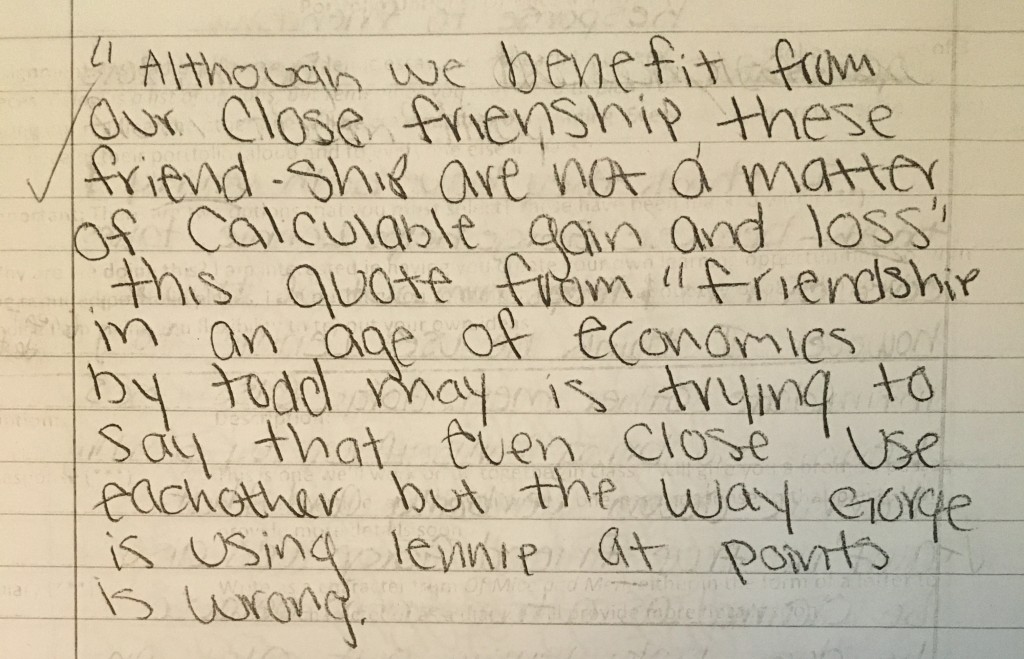 "Although we benefit from
our close frienship these
friend-ship are not a matter
of calculable gain and loss"
this quote from "friendship
in an age of economics
by todd may is trying to
say that even close use
eachother but the way George
is using lennie at points
is wrong.